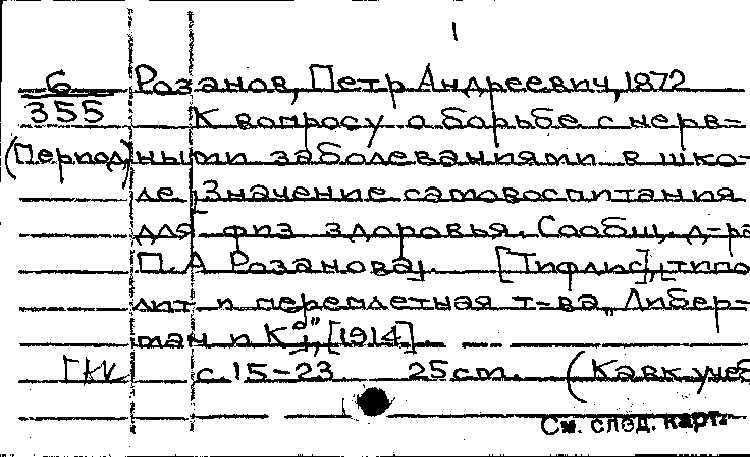 1
6 Розанов, Петр Андреевич, 1872
355 К вопросу о борьбе с нерв-
(Период) ными заболеваниями в шко-
ле [Значение самовоспитания
для физ здоровья. Сообщ. д-ра
П.А Розанова]. [Тифлис], [типо
лит и переплетная т-ва „Либер-
ман и К°"], [1914].
с. 15-23 25 см. (Кавк. учеб
См. след. карт.